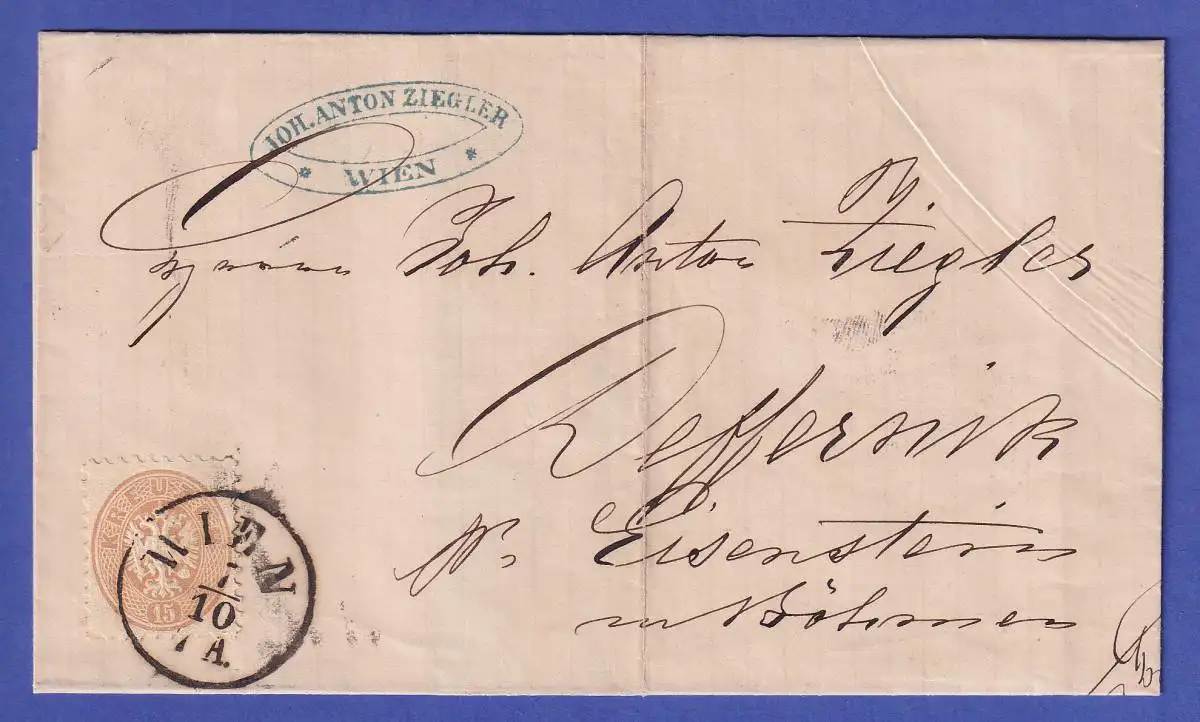 JOH. ANTON ZIEGLER
* WIEN *
Joh. Anton Ziegler
Deffernik
pr Eisenstein
in Böhmen
KREU
15
WIEN
10
7 A.